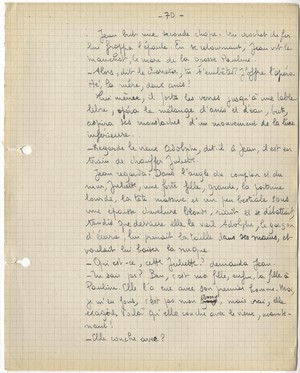 - 70 -
Jean but une seconde chope. Un crochet de fer
lui frappa l'épaule. En se retournant, Jean vit le
manchot, le mari de la grosse Pauline.
- Alors, dit le charretier, tu t'embêtes? J'offre l'apéro.
Hé, la mère, deux amis!
Lui-même, il porta les verres jusqu'à une table
libre, opéra le mélange d'amis et d'eau, but,
aspira ses moustaches d'un mouvement de la lèvre
inférieure.
- Regarde le vieux Adolphe, dit-il à Jean, il est en
train de chauffer Juliette.
Jean regarda. Dans l'angle du comptoir et du
mur, Juliette, une forte fille, grande, la poitrine
lourde, la tête massive et un peu bestiale sous
une épaisse chevelure blonde, riait et se débattait
tandis que derrière elle le vieil Adolphe, le garçon
d'écurie, lui prenait la taille dans ses mains, et
voulait lui baiser la nuque.
- Qui est-ce, cette Juliette? demanda Jean.
- Tu sais pas? Ben, c'est ma fille, enfin, la fille à
Pauline. Elle l'a eue avec son premier homme. Moi,
je m'en fous, c'est pas mon sang, mais vrai, elle
exagère. Voilà qu'elle couche avec le vieux, mainte-
nant!
- Elle couche avec?